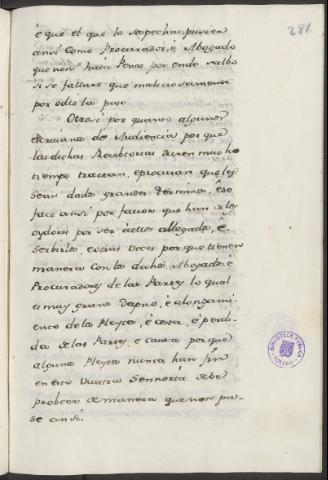 281
é que el que lo sospechoso pusiere
ansí como Procurador, é Abogado
que non haia Pena por ende salbo
si se fallare que maliciosamente
por odio la puso.
Otrosi por quanto algunos
escrivanos de Audiencia por que
las dichas Recebtorias duren mucho
tiempo traeran, e procuran que les
sean dados grandes Términos, é so
face ansi por favor que han de los
oydores por ser dellos allegados, é
serbirlos, é otras veces por que tienen
maneras con los dichos Abogados é
Procuradores de las Partes lo qual
es muy grand Dapno, é alongami-
ento de los Pleytos, é costa, é perdi-
da de las Partes, e causa por que
algunos Pleytos nunca han fin
en esto Vuestra Sennoria debe
probeer de manera que non pa-
se ansí.
BIBLIOTECA PUBLICA
TOLEDO